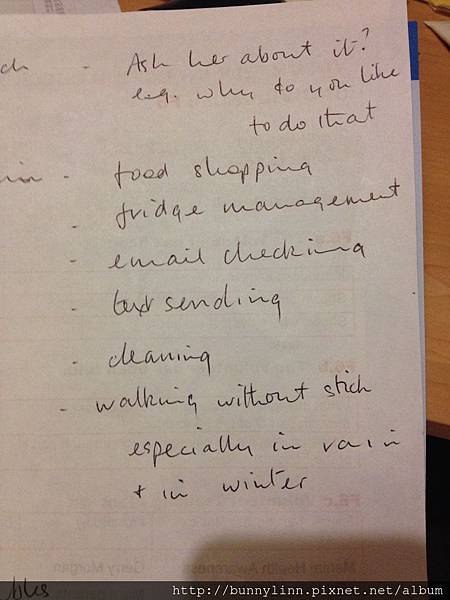 - Ask her about it?
e.g. why do you like
to do that
- food shopping
- fridge management
- email checking
- text sending
- cleaning
- walking without stick
especially in rain
+ in winter
Mental Health Awareness Gerry Morgan
http://bunnylinn.pixnet.net/album